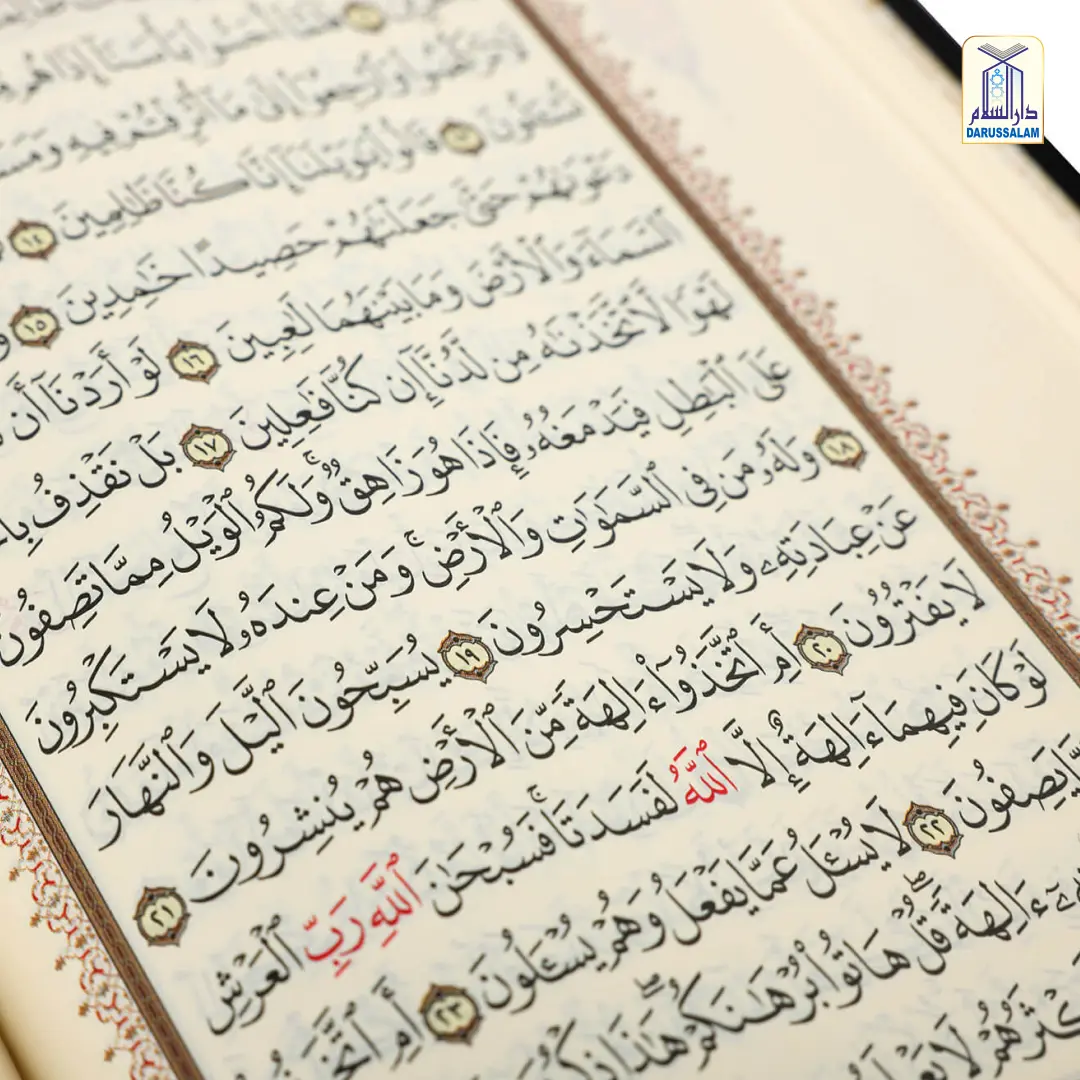 فَلَمَّآ أَحَسُّوا۟ بَأْسَنَآ إِذَا هُم
لَا تَرْكُضُوا۟ وَٱرْجِعُوٓا۟ إِلَىٰ مَآ أُتْرِفْتُمْ فِيهِ
تُسْـَٔلُونَ ١٣ قَالُوا۟ يَٰوَيْلَنَآ إِنَّا كُنَّا ظَٰلِمِينَ ١٤
دَعْوَىٰهُمْ حَتَّىٰ جَعَلْنَٰهُمْ حَصِيدًا خَٰمِدِينَ ١٥
ٱلسَّمَآءَ وَٱلْأَرْضَ وَمَا بَيْنَهُمَا لَٰعِبِينَ ١٦ لَوْ أَرَدْنَآ أَن
لَهْوًا لَّٱتَّخَذْنَٰهُ مِن لَّدُنَّآ إِن كُنَّا فَٰعِلِينَ ١٧ بَلْ نَقْذِفُ بِٱ
عَلَى ٱلْبَٰطِلِ فَيَدْمَغُهُۥ فَإِذَا هُوَ زَاهِقٌ ۚ وَلَكُمُ ٱلْوَيْلُ مِمَّا تَصِفُونَ
١٨ وَلَهُۥ مَن فِى ٱلسَّمَٰوَٰتِ وَٱلْأَرْضِ ۚ وَمَنْ عِندَهُۥ لَا يَسْتَكْبِرُونَ
عَنْ عِبَادَتِهِۦ وَلَا يَسْتَحْسِرُونَ ١٩ يُسَبِّحُونَ ٱلَّيْلَ وَٱلنَّهَارَ
لَا يَفْتُرُونَ ٢٠ أَمِ ٱتَّخَذُوٓا۟ ءَالِهَةً مِّنَ ٱلْأَرْضِ هُمْ يُنشِرُونَ ٢١
لَوْ كَانَ فِيهِمَآ ءَالِهَةٌ إِلَّا ٱللَّهُ لَفَسَدَتَا ۚ فَسُبْحَٰنَ ٱللَّهِ رَبِّ ٱلْعَرْشِ
يَصِفُونَ ٢٢ لَا يُسْـَٔلُ عَمَّا يَفْعَلُ وَهُمْ يُسْـَٔلُونَ ٢٣ أَمِ ٱتَّخَذُ
ءَالِهَةً ۖ قُلْ هَاتُوا۟ بُرْهَٰنَكُمْ ۖ هَٰذَا ذِكْرُ
كْثَرُهُمْ لَا يَعْلَ
دارالسلام
DARUSSALAM